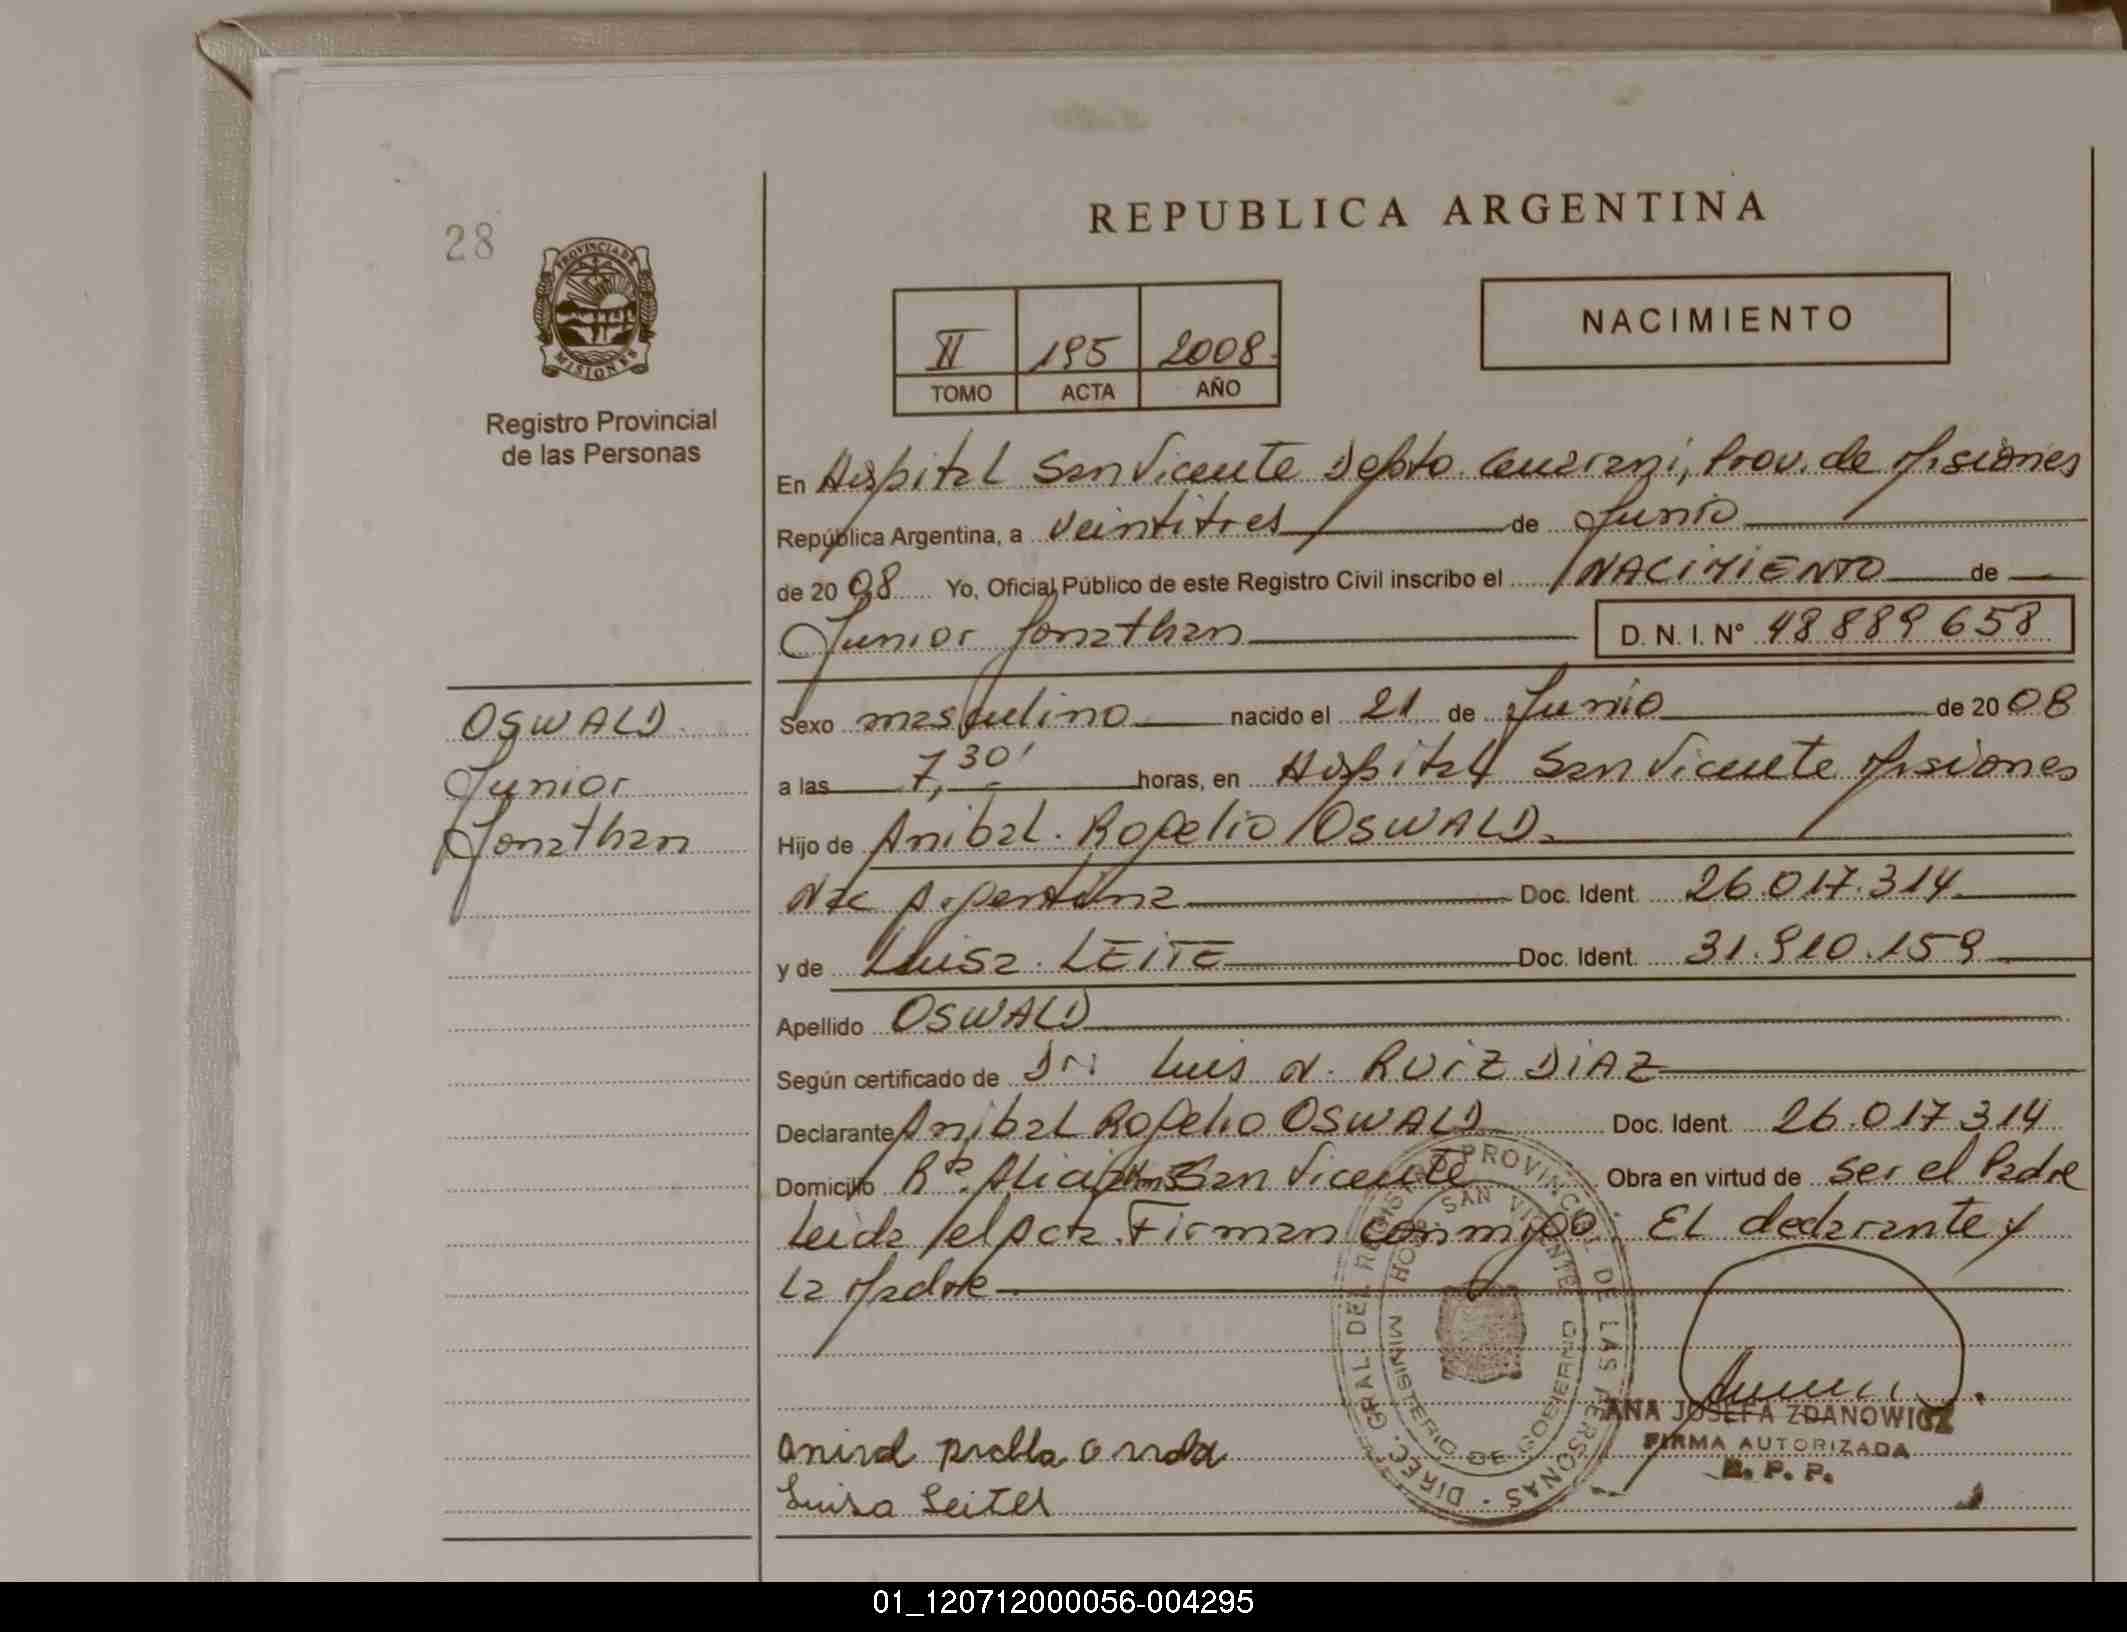 28
PROVINCIA DE
MISIONES
Registro Provincial
de las Personas
OSWALD
Junior
Jonathan
REPUBLICA ARGENTINA
II 195 2008
TOMO ACTA AÑO
NACIMIENTO
En Hospital San Vicente Depto. Guarani, Prov. de Misiones
República Argentina, a veintitres de Junio
de 2008 Yo, Oficial Público de este Registro Civil inscribo el NACIMIENTO de
Junior Jonathan D. N. I. Nº 48 889 658
Sexo masculino nacido el 21 de Junio de 2008
a las 7,30' horas, en Hospital San Vicente Misiones
Hijo de Anibal Rogelio OSWALD
Nac Argentina Doc. Ident. 26.017.314
y de Luisa LEITE Doc. Ident. 31.910.159
Apellido OSWALD
Según certificado de Dr. Luis N. RUIZ DIAZ
Declarante Anibal Rogelio OSWALD Doc. Ident. 26.017.314
Domicilio Bº. Alicia San Vicente Obra en virtud de ser el Padre
Leida el Acta Firman conmigo. El declarante y
La Madre
DIREC. GRAL DEL REGISTRO PROVINCIAL DE LAS PERSONAS
HOSP. SAN VICENTE
MINISTERIO DE GOBIERNO
ANA JOSEFA ZDANOWICZ
FIRMA AUTORIZADA
R. P. P.
Luisa Leites
01_120712000056-004295